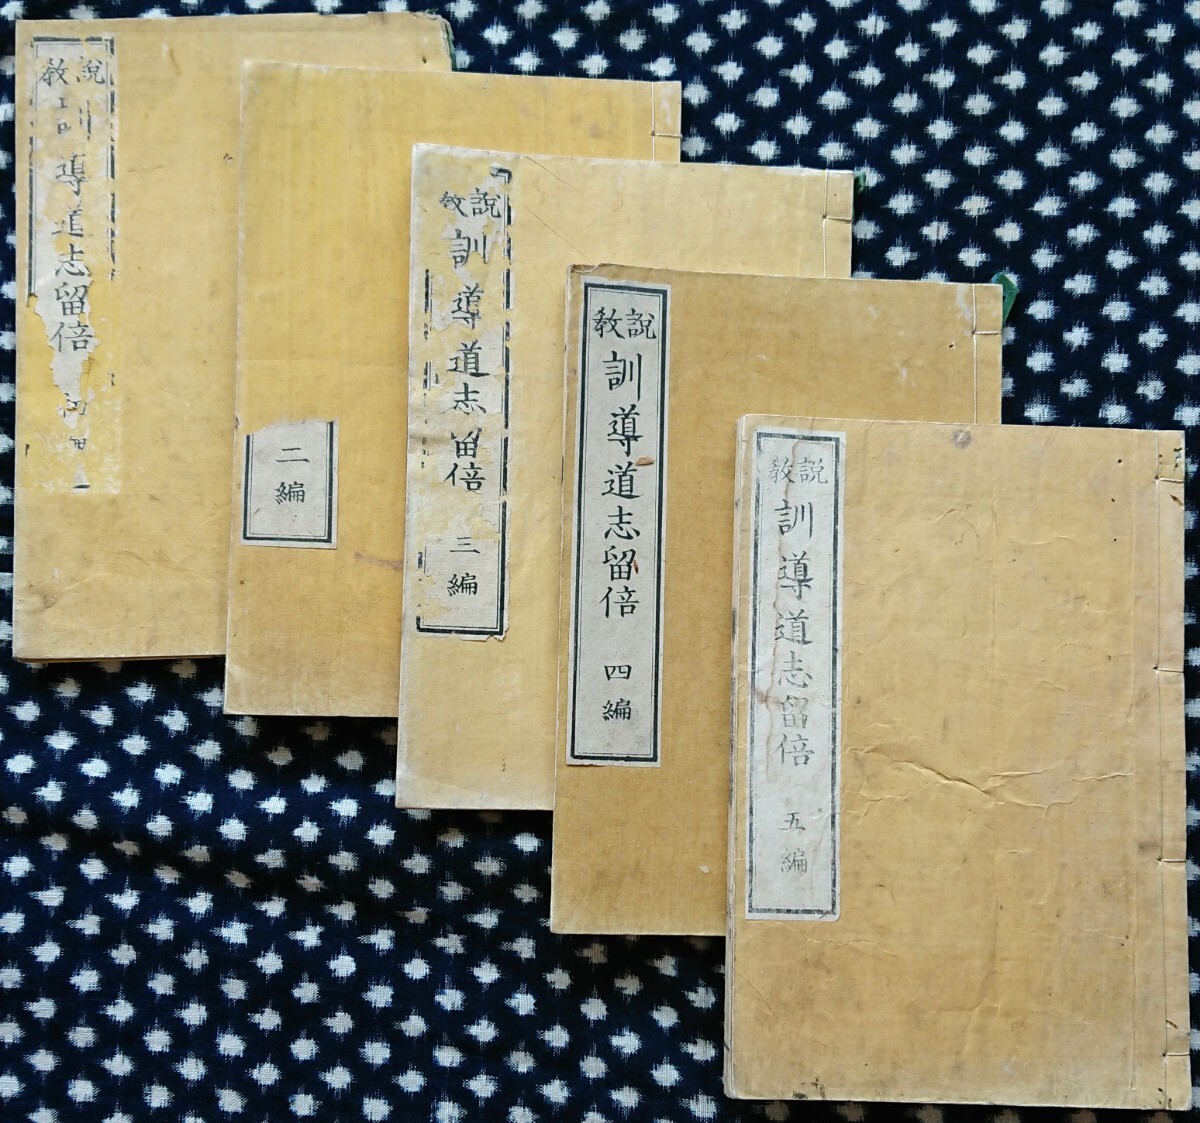 説教
訓導道志留倍
二編
説教
訓導道志留倍
三編
説教
訓導道志留倍
四編
説教
訓導道志留倍
五編